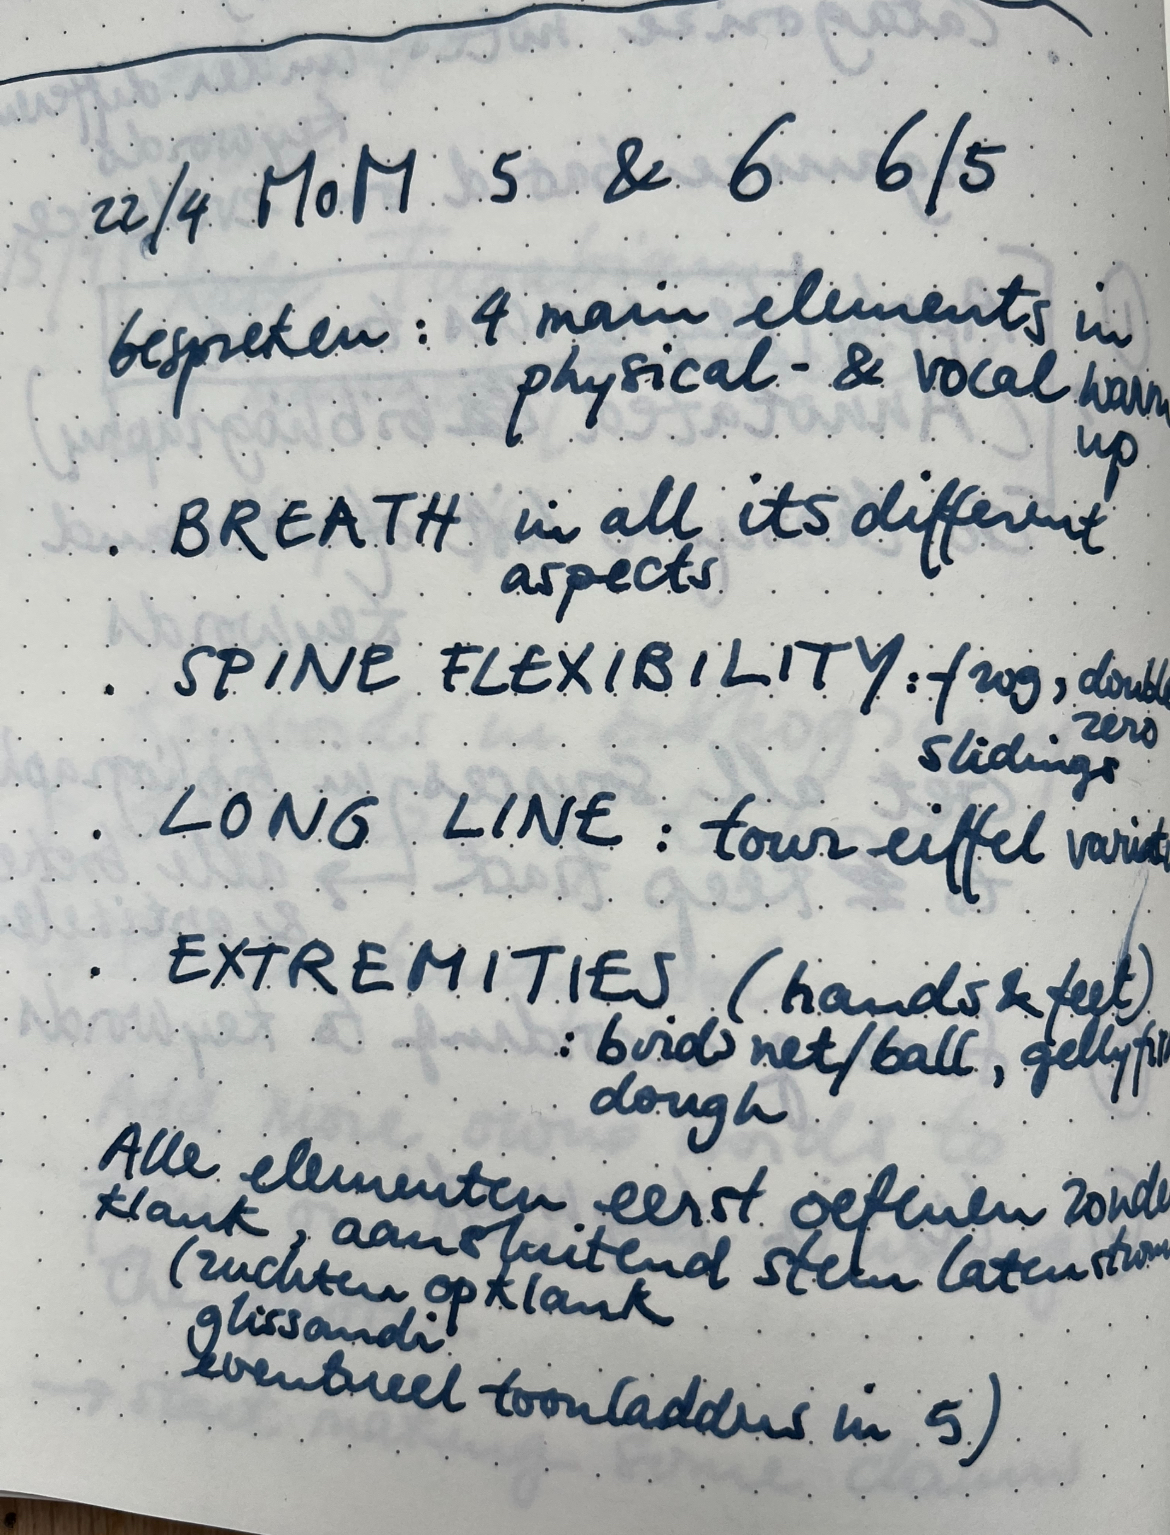 22/4 MoM 5 & 6 6/5
bespreken : 4 main elements in
physical- & vocal warm
up
. BREATH in all its different
aspects
. SPINE FLEXIBILITY : frog, double
zero
slidings
. LONG LINE : tour eiffel variati
. EXTREMITIES (hands & feet)
: birds net/ball, gellyfis
dough
Alle elementen eerst oefenen zonde
klank, aansluitend stem laten strom
(zuchten op klank
glissandi
eventueel toonladders in 5)